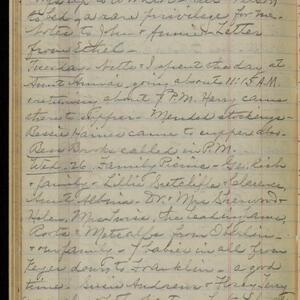 to bed, a rare privilege for me.
Notes to John & Annie & Letter
from Ethel.
Tuesday. Nette & I spent the day at
Aunt Anna's, going about 11:15 A.M.
returning about 7 P.M. Harry came
there to supper. Mended stockings.
Bessie Haines came to supper also.
Bess Brooks called in P.M.
Wed. 26. Family Picnic - Geo. Rich
& family - Lillie Sutcliffe, Clarence,
Aunt Albina - Dr. & Mrs. Sherwood &
Helen,
Roots & Metcalfs from Oberlin -
& our family - 7 tables in all from
down to Franklin - a good
time. Susie Andrews &